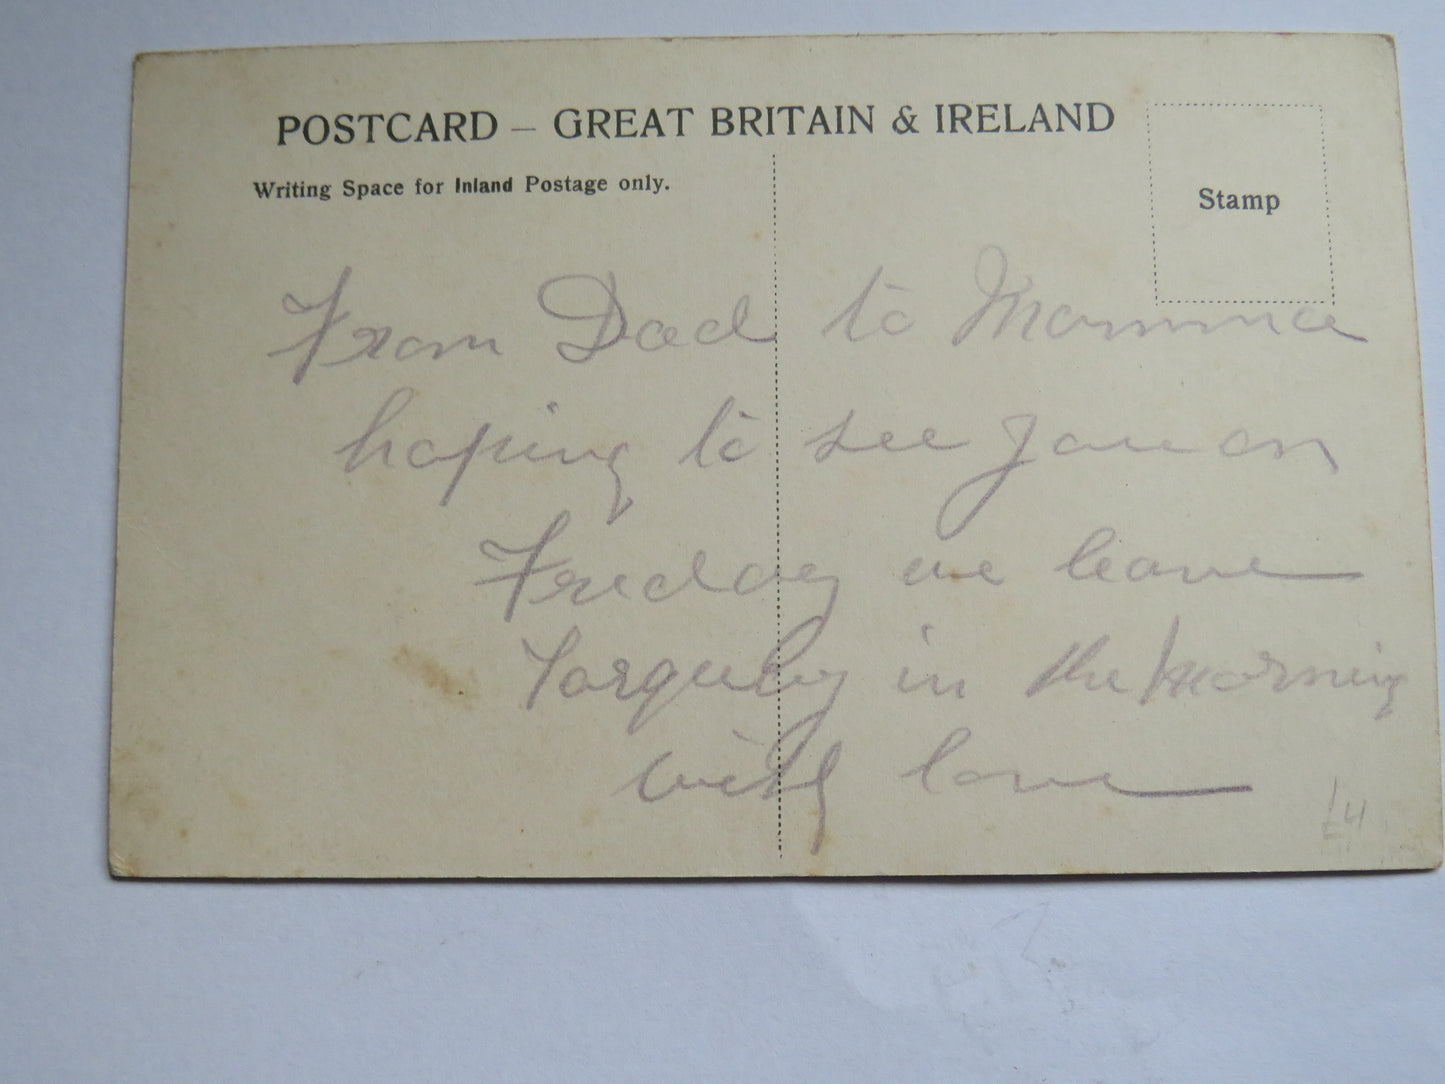 POSTCARD – GREAT BRITAIN & IRELAND
Writing Space for Inland Postage only.
Stamp
From Dad to Momma
hoping to see you on
Friday we leave
Torquay in the morning
with love
£4